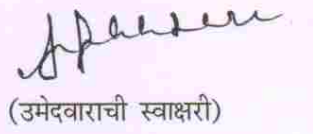 (उमेदवाराची स्वाक्षरी)